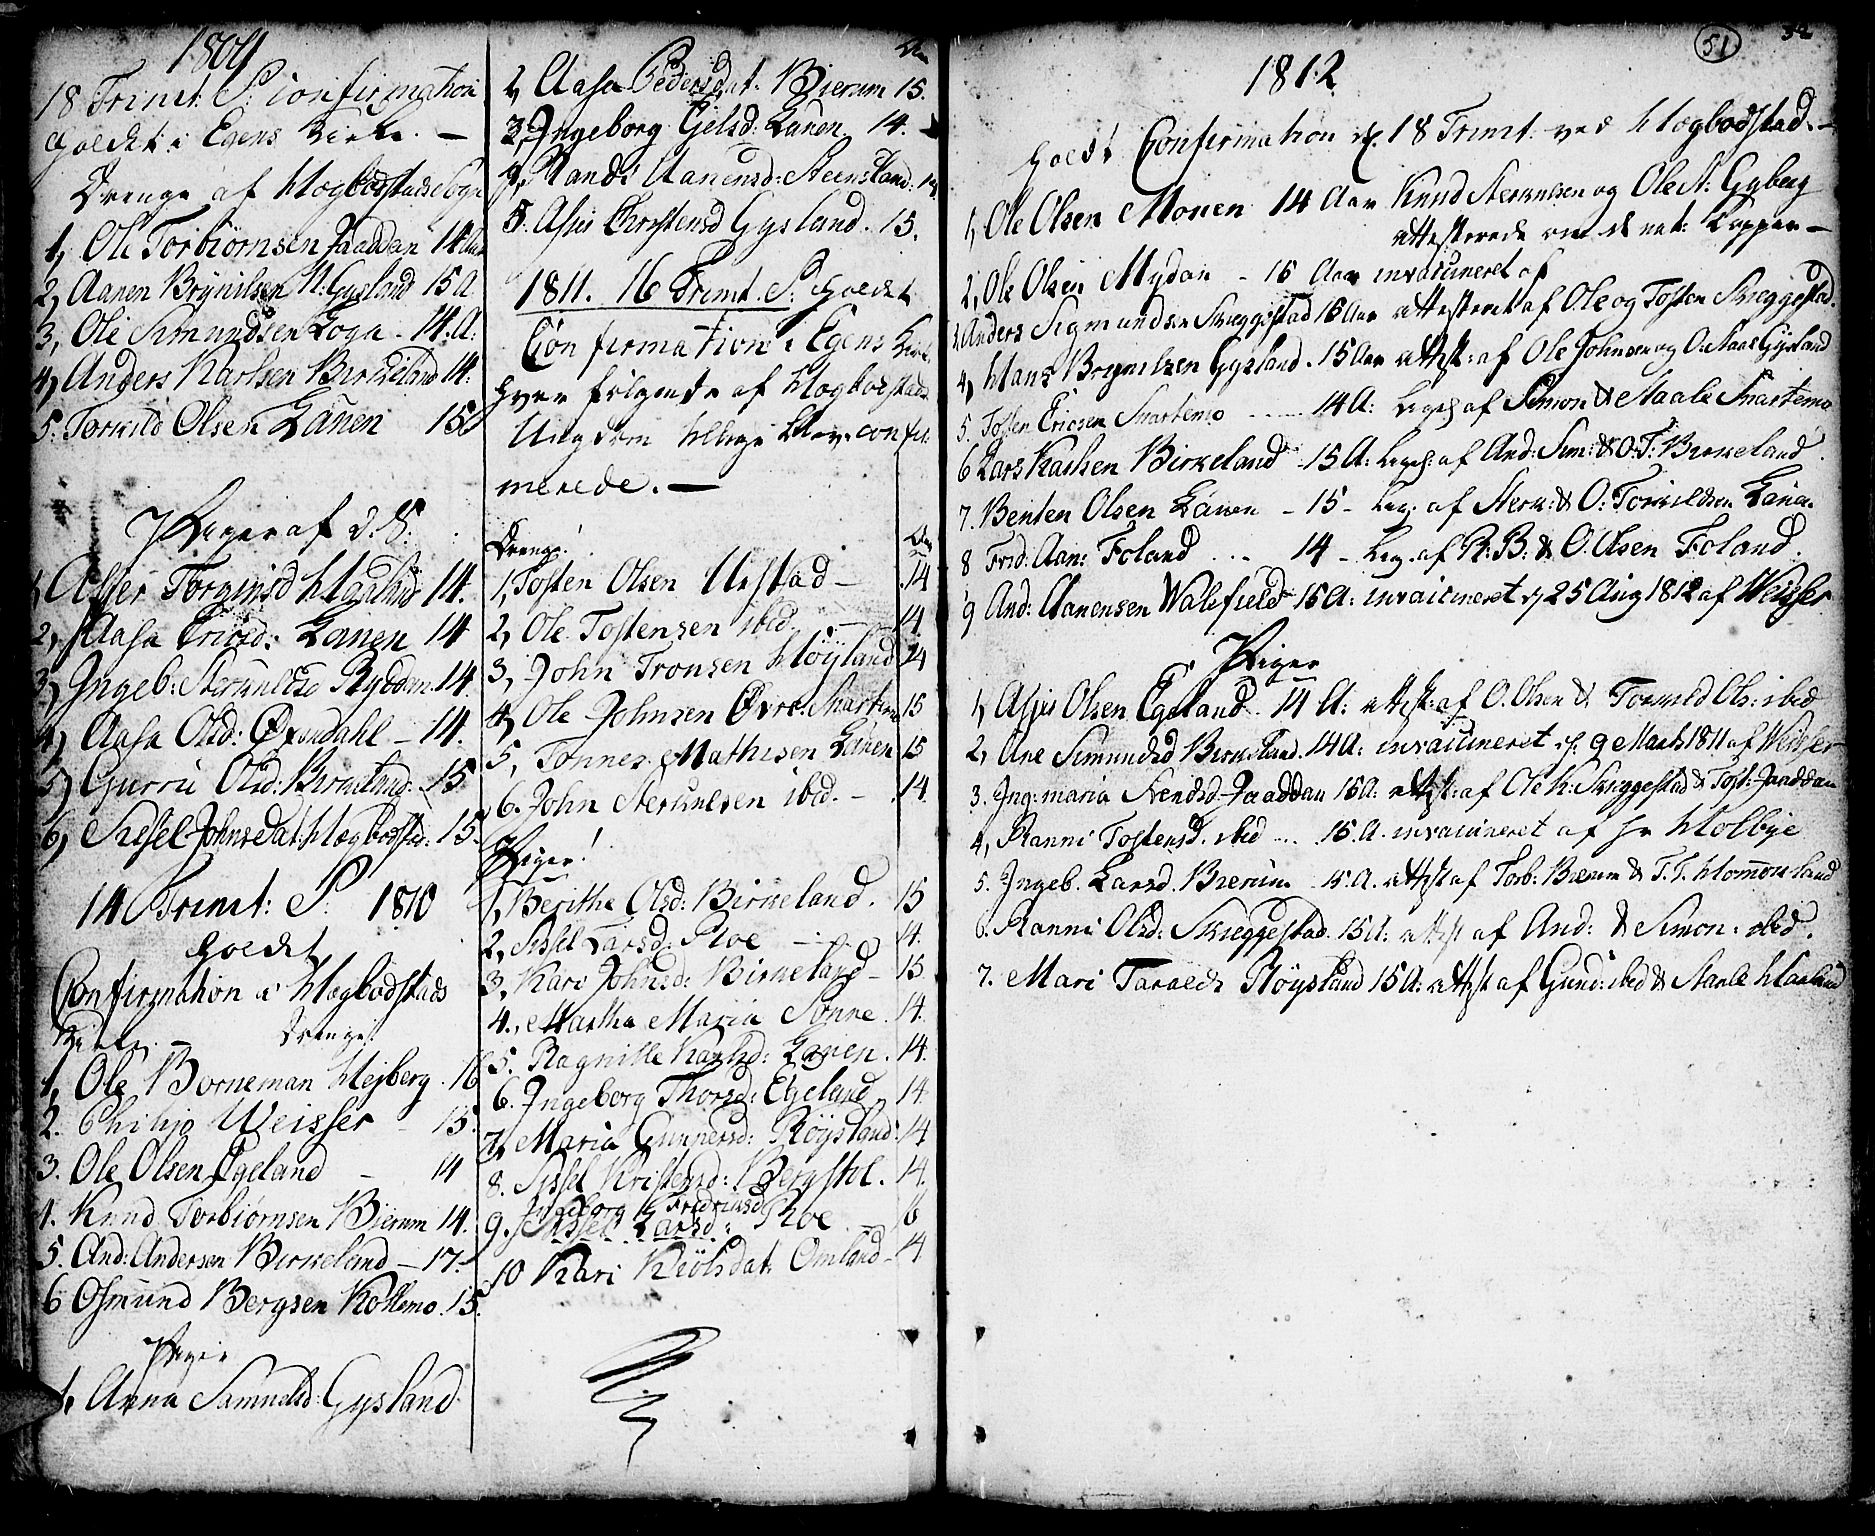 1809
18 Trinit: S: Confirmation
holdet i Egens Kirke. —
Drenge af Hægbodstads Sogn
1, Ole Torbiörnsen Jaaddan 14 Aar
2, Aanen Brÿnilsen N: Gysland 15 A
3, Ole Simundsen Loga - 14. A:
4, Anders Karlsen Birkeland 14.
5. Torkild Olsen Länen 15
Piger af d. S.
1, Asser Torginsd Haaland 14.
2, Aasa Ericsd: Lanen 14
3, Ingeb: Sterkulsd Ryddan. 14.
4, Aasa Olsd: Øvendahl - 14.
5, Gurri Olsd: Birkeland. - 15
6, Sissel Johnsdat: Hægbodstad. 15.
14 Trinit: S. 1810
holdt
Confirmation i Hægbodstads
Kirke. — Drenge!
1, Ole Borneman Hejberg. 16
2. Philip Weisser - 15.
3. Ole Olsen Egeland - 14
4. Knud Torbiörnsen Bierum 14.
5. And: Andersen Birkeland - 17 -
6 Osmund Bergsen Kollemo. 15.
Piger
1. Anna Samuelsd: Gysland
2, Aasa Pedersdat. Bierum 15.
3, Ingeborg Ejelsd. Länen 14.
4, Randi Aanensd: Steensland. 14
5. Assus Chrystensd Gysland. 15.
1811. 16 Trinit. S: holdet
Confirmation i Egens Kirke
hvor fölgende af Hægbodstads
Ungdom tillige blev confir-
merede. —
Drenge!
1, Tosten Olsen Urstad - 14
2, Ole Tostensen ibid. - 14
3, John Tronsen Höÿland 14
4, Ole Johnsen Øvre. Snartemo 15
5, Tönnes Mathisen Länen 15
6. John Sterkulsen ibid. - 14.
Piger!
1, Berithe Olsd: Birkeland. 15
2, Sissel Larsd: Roe - 14.
3, Kari Johnsd: Birkeland - 15
4., Martha Maria Sonne. 14.
5. Ragnille Karlsd: Lanen. 14.
6. Ingeborg Thorsd: Egeland 14.
7, Maria Gunnersd: Röÿsland 14
8. Sissel Kristensd: Bergstol. 14.
Ingeborg Fredriksd
9. Sissel Larsd: Roe - 16
10 Kari Kiölsdat: Omland - 14
51
1812
holdt Confirmation d. 18 Trinit: ved Hægbodstad. -
1, Ole Olsen Monen 14 Aar Knud Sterkulsen og Ole A: Gyberg
attesterede om de nat: Kopper —
2, Ole Olsen Mydan - 15 Aar invaccineret af
3, Anders Sigmundsen Skreggestad 15 Aar attesteret af Ole og Tosten Skreggestad.
4, Hans Brynilsen Gysland. 15 Aar attest: af Ole Johnsen og Gysland
5. Tosten Ericsen Snartemo ..... 14 A: ligel: af Simon & Staale Snartemo
6 Lars Karlsen Birkeland - 15 A: ligel: af And: Sim: & O: T: Birkeland.
7. Benten Olsen Länen - 15 - lig. af Sterk: & O: Torkildsen Länen.
8 Frid: Aan: Foland ... 14 - Lig. af P: B: & O. Olsen Foland.
9 And: Aanensen Walefield 15 A: invaccineret d. 25 Aug 1812 af Weisser
Piger
1, Assus Olsen Egeland. 14 A: attest: af O. Olsen & Torkild Ols: ibid
2, Ane Simundsd Birkeland. 14 A: invaccineret d. 9 Marts 1811 af Weisser
3. Ing: maria Svendsd Jaaddan 15 A: attest: af Ole K: Skreggestad & Tost: Jaaddan
4, Ranni Tostensd. ibid ... 15. A. invaccineret af Hr Holbye
5. Ingeb. Larsd. Bierum 15. A. attest af Torb: Bierum & T. T. Homsland
6. Ranni Olsd: Skreggestad. 15 A: attest af And: & Simon: ibid.
7. Mari Taraldsd Röÿsland 15 A: attest af Gund: ibid & Staale Haaland